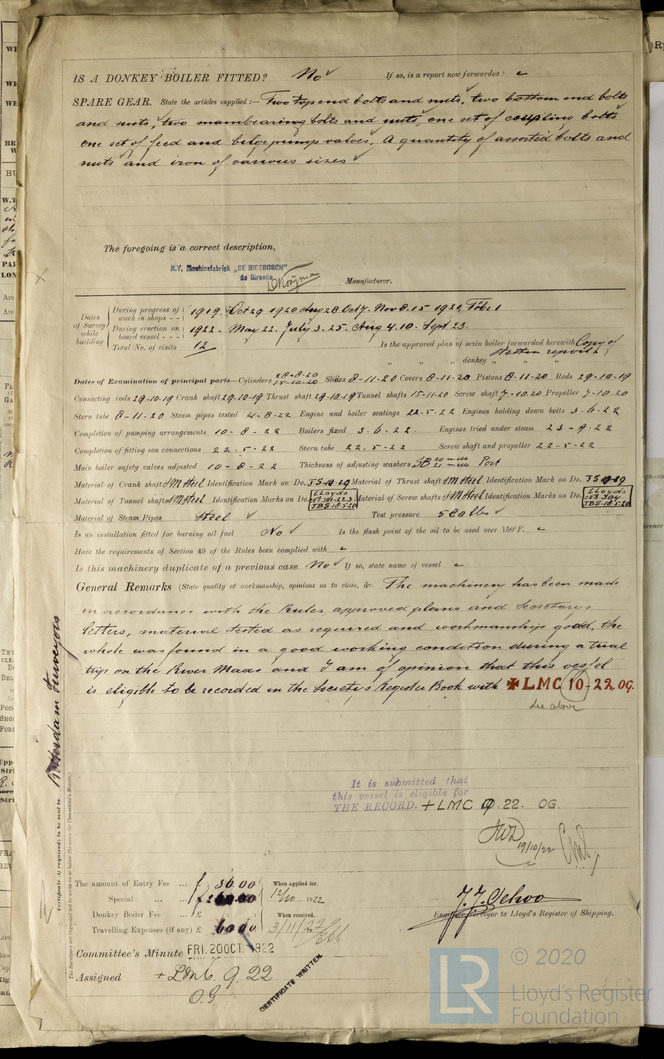 IS A DONKEY BOILER FITTED? No ✓ If so, is a report now forwarded?
SPARE GEAR. State the articles supplied:— Two top end bolts and nuts, two bottom end bolts
and nuts, two mainbearing bolts and nuts, one set of coupling bolts
one set of feed and bilge pump valves. A quantity of assorted bolts and
nuts and iron of various sizes
The foregoing is a correct description,
N.V. Machinefabriek „DE BIESBOSCH"
de Directie
Manufacturer.
Dates of Survey while building
During progress of work in shops - - 1919. Oct 29 1920 Aug 28 Oct 7. Nov 8. 15 1921, Febr 1
During erection on board vessel - - - 1922. May 22. July 3. 25. Aug 4. 10. Sept 23.
Total No. of visits 12 Is the approved plan of main boiler forwarded herewith Copy of
" " " donkey " " "
Dates of Examination of principal parts—Cylinders 28-8-20 15-10-20 Slides 8-11-20 Covers 8-11-20 Pistons 8-11-20 Rods 29-10-19
Connecting rods 29-10-19 Crank shaft 29-10-19 Thrust shaft 29-10-19 Tunnel shafts 15-11-20 Screw shaft 7-10-20 Propeller 7-10-20
Stern tube 8-11-20 Steam pipes tested 4-8-22 Engine and boiler seatings 22-5-22 Engines holding down bolts 3-6-22
Completion of pumping arrangements 10-8-22 Boilers fixed 3-6-22 Engines tried under steam 23-9-22
Completion of fitting sea connections 22-5-22 Stern tube 22-5-22 Screw shaft and propeller 22-5-22
Main boiler safety valves adjusted 10-8-22 Thickness of adjusting washers Port
Material of Crank shaft SM Steel Identification Mark on Do. Material of Thrust shaft SM Steel Identification Mark on Do.
Material of Tunnel shafts SM Steel Identification Marks on Do. Lloyds Material of Screw shafts SM Steel Identification Marks on Do. Lloyds
Material of Steam Pipes Steel ✓ Test pressure 580 lbs ✓
Is an installation fitted for burning oil fuel No ✓ Is the flash point of the oil to be used over 150°F.
Have the requirements of Section 49 of the Rules been complied with
Is this machinery duplicate of a previous case No ✓ If so, state name of vessel
General Remarks (State quality of workmanship, opinions as to class, &c. The machinery has been made
in accordance with the Rules approved plans and Secretarys
letters, material tested as required and workmanship good, the
whole was found in a good working condition during a trial
trip on the River Maas and I am of opinion that this vessel
is eligible to be recorded in the Society's Register Book with ✠ LMC 10-22 OG.
See above
It is submitted that
this vessel is eligible for
THE RECORD. + LMC 9. 22. OG.
19/10/22
Rotterdam Surveyors
The amount of Entry Fee ... When applied for,
Special ... ... 1922
Donkey Boiler Fee ... £ When received.
Travelling Expenses (if any) £ 3/11/22
Engineer Surveyor to Lloyd's Register of Shipping.
Committee's Minute FRI. 20 OCT. 1922
Assigned + LMC. 9. 22
OG
CERTIFICATE WRITTEN
LR © 2020
Lloyd's Register
Foundation